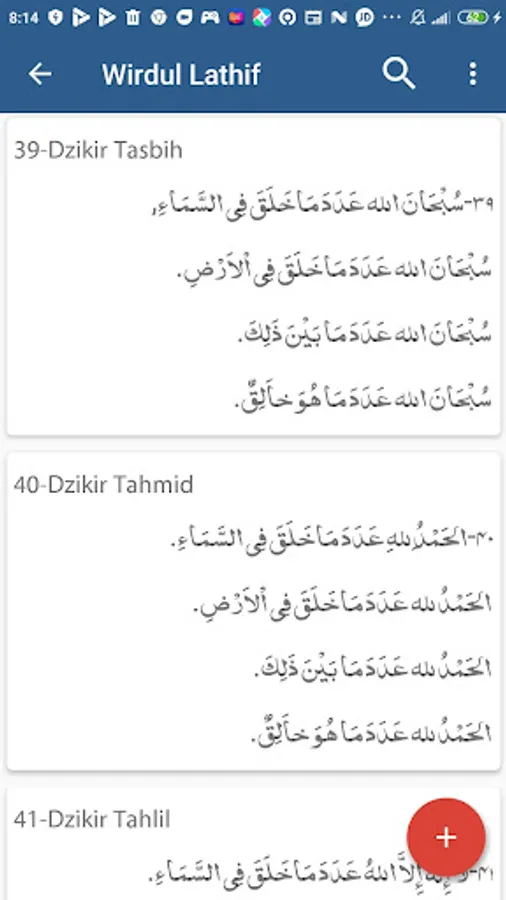 8:14
62
Wirdul Lathif
39-Dzikir Tasbih
٣٩-سُبْحَانَ الله عَدَدَ مَا خَلَقَ فِى السَّمَاءِ,
سُبْحَانَ الله عَدَدَ مَا خَلَقَ فِى اْلاَرْضِ.
سُبْحَانَ الله عَدَدَ مَا بَيْنَ ذَلِكَ.
سُبْحَانَ الله عَدَدَ مَا هُوَ خاَلِقٌ.
40-Dzikir Tahmid
٤٠-الحَمْدُ ِللهِ عَدَدَ مَا خَلَقَ فِى السَّمَاءِ.
الحَمْدُ لله عَدَدَ مَا خَلَقَ فِى اْلاَرْضِ.
الحَمْدُ لله عَدَدَ مَا بَيْنَ ذَلِكَ.
الحَمْدُ لله عَدَدَ مَا هُوَ خاَلِقٌ.
41-Dzikir Tahlil
٤١-لا إِلهَ إِلاَّ اللهُ عَدَدَ مَا خَلَقَ فِى السَّمَاءِ.